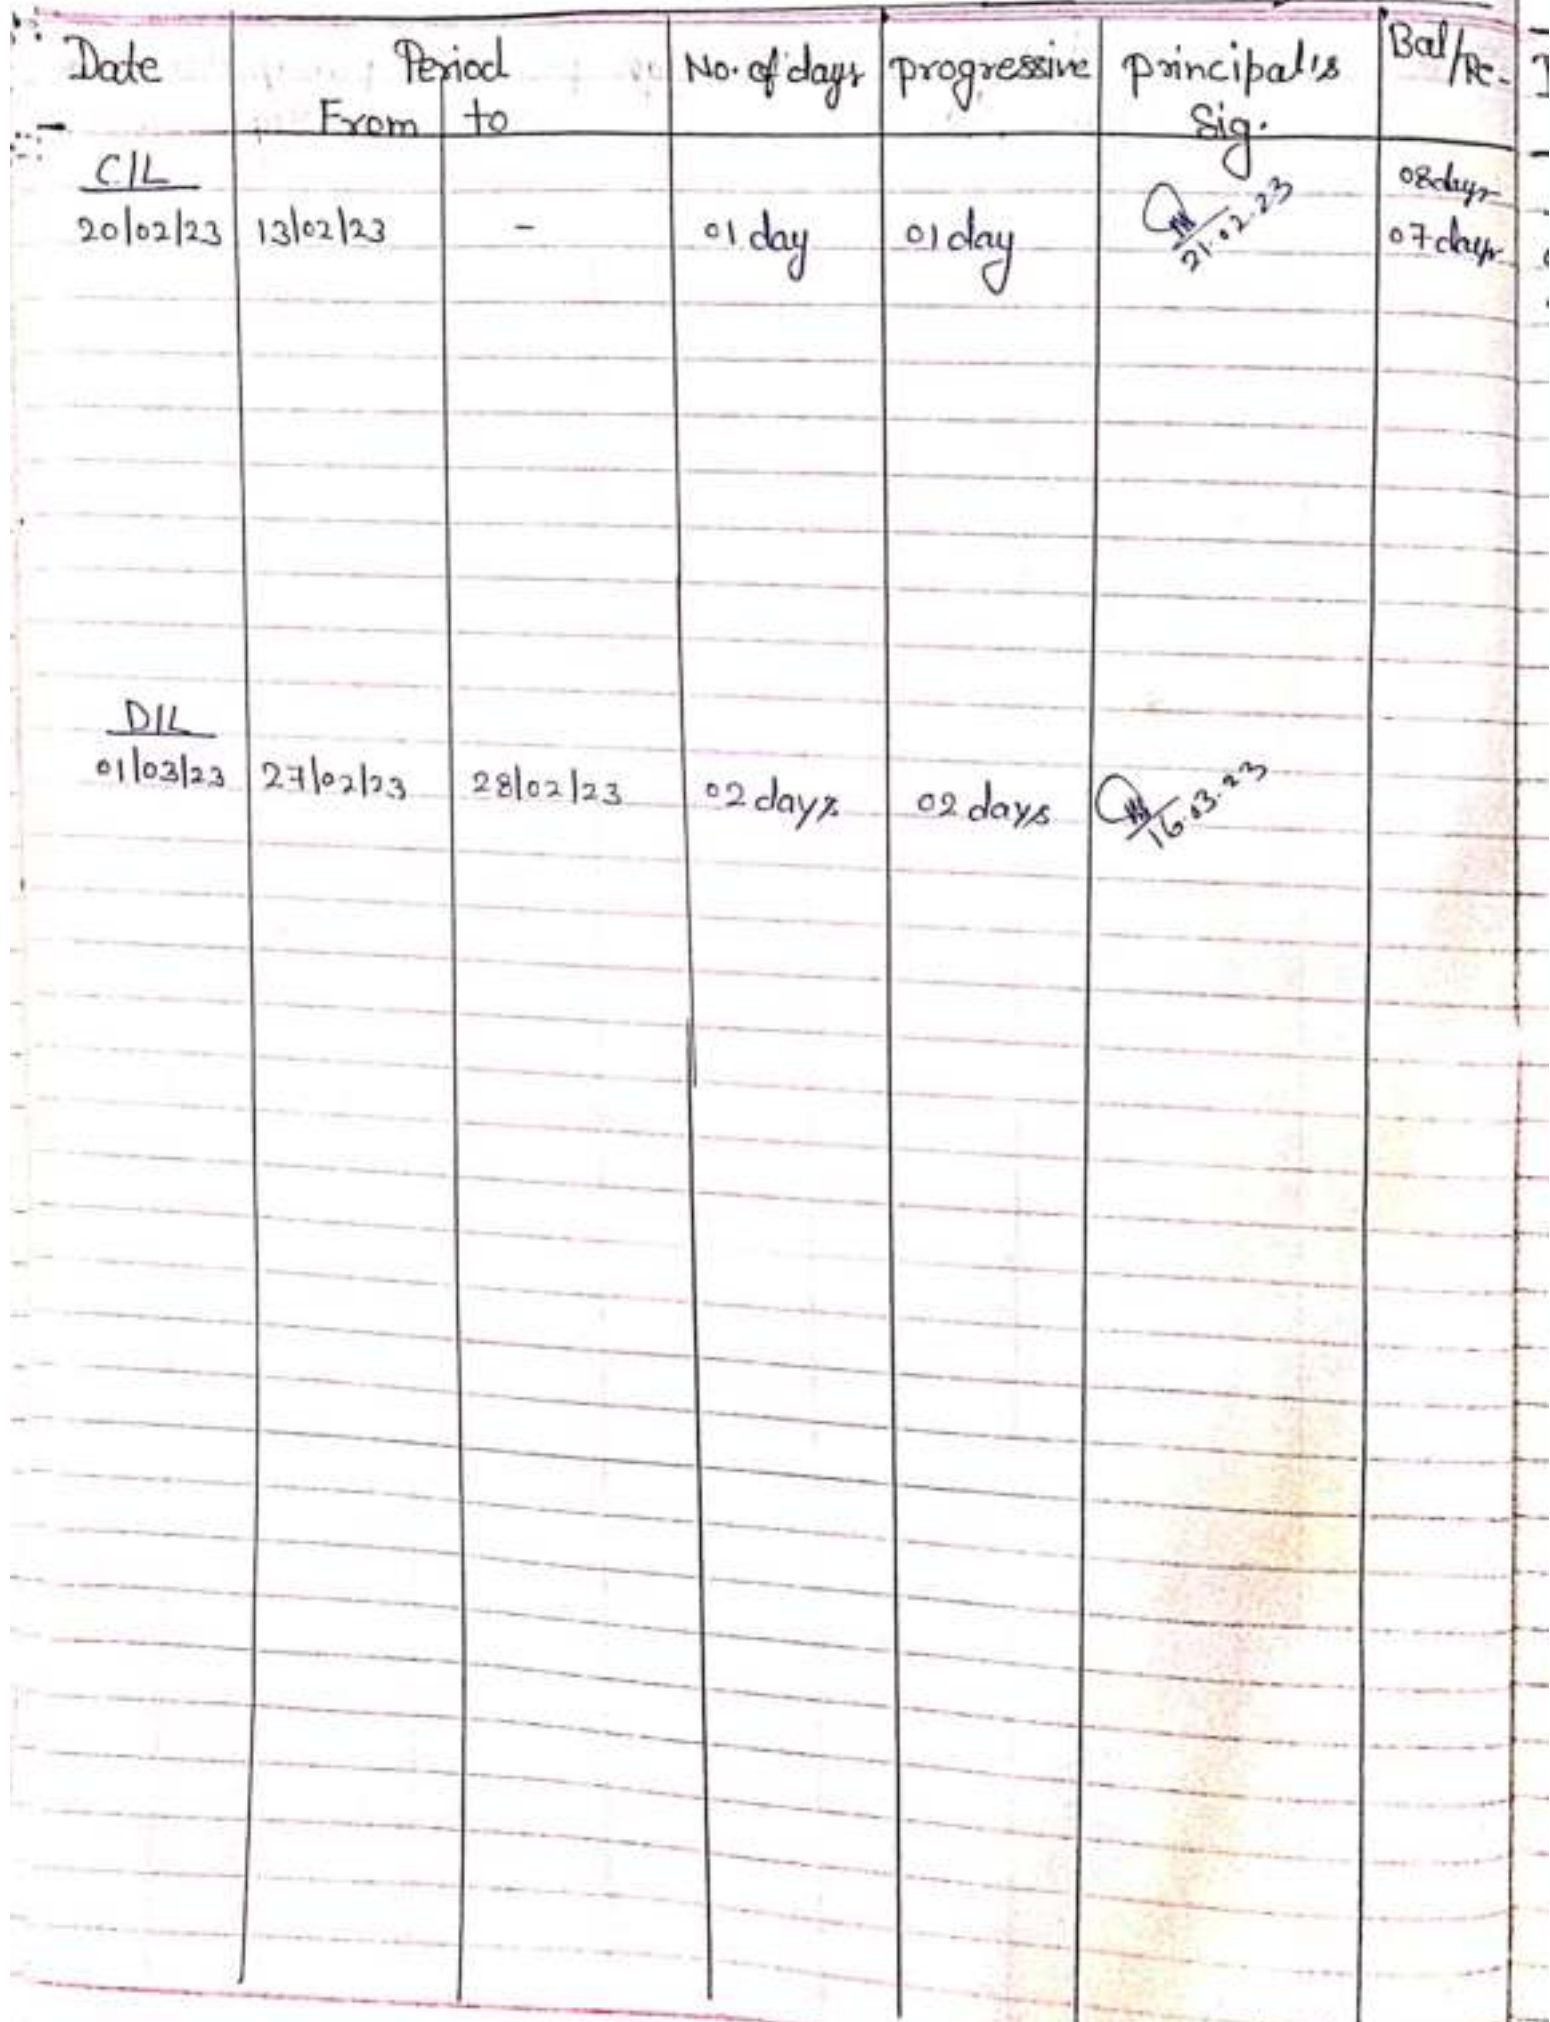 Date Period No. of days progressive principal's Bal/Re.
From to Sig.
C/L 08 days
20/02/23 13/02/23 - 01 day 01 day 21.02.23 07 days
D/L
01/03/23 27/02/23 28/02/23 02 days 02 days 16.03.23